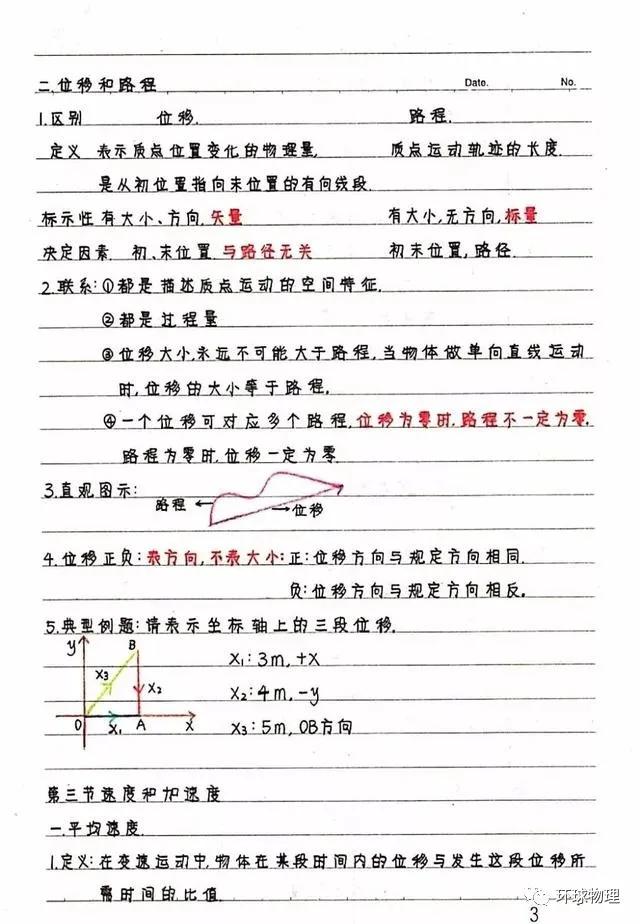 二.位移和路程 Date. No.
1.区别 位移. 路程.
定义 表示质点位置变化的物理量, 质点运动轨迹的长度.
是从初位置指向末位置的有向线段.
标示性 有大小、方向,矢量 有大小,无方向,标量
决定因素 初、末位置.与路径无关 初末位置,路径.
2.联系:①都是描述质点运动的空间特征.
②都是过程量
③位移大小,永远不可能大于路程,当物体做单向直线运动
时,位移的大小等于路程.
④一个位移可对应多个路程,位移为零时,路程不一定为零.
路程为零时,位移一定为零
3.直观图示:
路程 ← → 位移
4.位移正负:表方向,不表大小:正:位移方向与规定方向相同.
负:位移方向与规定方向相反.
5.典型例题:请表示坐标轴上的三段位移.
y B x₃ x₂ O x₁ A x
x₁:3m,+x
x₂:4m,-y
x₃:5m,OB方向
第三节速度和加速度
一.平均速度.
1.定义:在变速运动中,物体在某段时间内的位移与发生这段位移所
需时间的比值.
环球物理
3